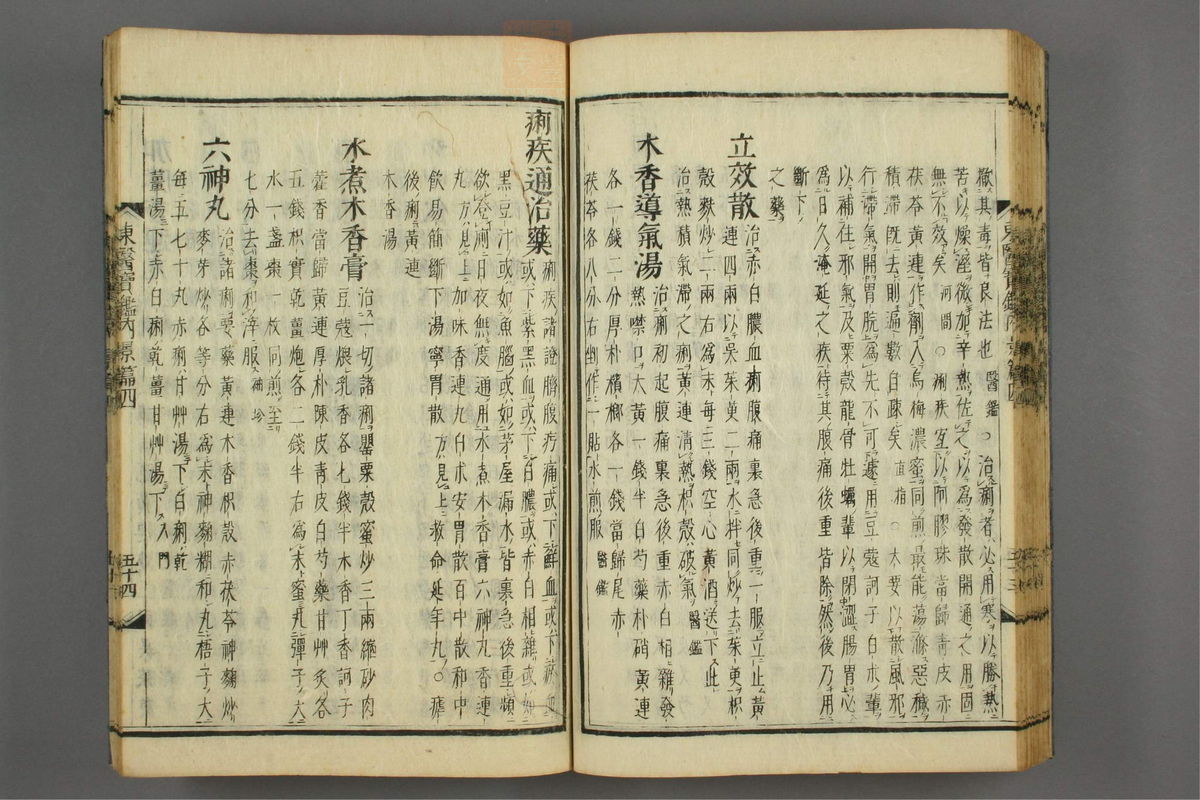 撤其毒皆良法也 醫鑑 ○治痢者必用寒以勝熱
苦以燥濕微加辛熱佐之以爲發散開通之用固
無不效矣 河間 ○痢疾宜以阿膠珠當歸青皮赤
茯苓黃連作劑入烏梅濃蜜同煎最能蕩滌惡穢
積滯既去則遍數自疎矣 直指 ○大要以散風邪
行滯氣開胃脘爲先不可遽用豆蔻訶子白朮輩
以補住邪氣及粟殼龍骨牡蠣輩以閉澁腸胃心
爲日久淹延之疾待其腹痛後重皆除然後乃用
斷下
之藥
立效散 治赤白膿血痢腹痛裏急後重一服立止黃
連四兩以吳茱萸二兩水拌同炒去茱萸枳
殼麩炒二兩右爲末每三錢空心黃酒送下此
治熱積氣滯之痢黃連淸熱枳殼破氣 醫鑑
木香導氣湯 治痢初起腹痛裏急後重赤白相雜發
熱噤口大黃一錢半白芍藥朴硝黃連
各一錢二分厚朴檳榔各一錢當歸尾赤
茯苓各八分右剉作一貼水煎服 醫鑑
痢疾通治藥 痢疾諸證臍腹疞痛或下鮮血或下瘀血
或下紫黑血或下白膿或赤白相雜或如
黑豆汁或如魚腦或如茅屋漏水皆裏急後重頻
欲登圊日夜無度通用水煮木香膏六神丸香連
丸 方見上 加味香連丸白朮安胃散百中散和中
飮易簡斷下湯寧胃散 方見上 救命延年丸○瘧
後痢黃連
木香湯
水煮木香膏 治一切諸痢罌粟殼蜜炒三兩縮砂肉
豆蔻煨乳香各七錢半木香丁香訶子
藿香當歸黃連厚朴陳皮靑皮白芍藥甘艸炙各
五錢枳實乾薑炮各二錢半右爲末蜜丸彈子大
水一盞棗一枚同煎至
七分去棗和滓服 袖珍
六神丸 治諸痢要藥黃連木香枳殼赤茯苓神麴炒
麥芽炒各等分右爲末神麴糊和丸梧子大
每五七十丸赤痢甘艸湯下白痢乾
薑湯下赤白痢乾薑甘艸湯下 入門
東醫寶鑑內景篇四
五十四